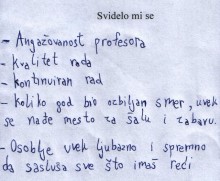 Svidelo mi se
- Angažovanost profesora
- Kvalitet rada
- Kontinuiran rad
- Koliko god bio ozbiljan smer, uvek
se nađe mesto za šalu i zabavu.
- Osoblje uvek ljubazno i spremno
da sasluša sve što imaš reći